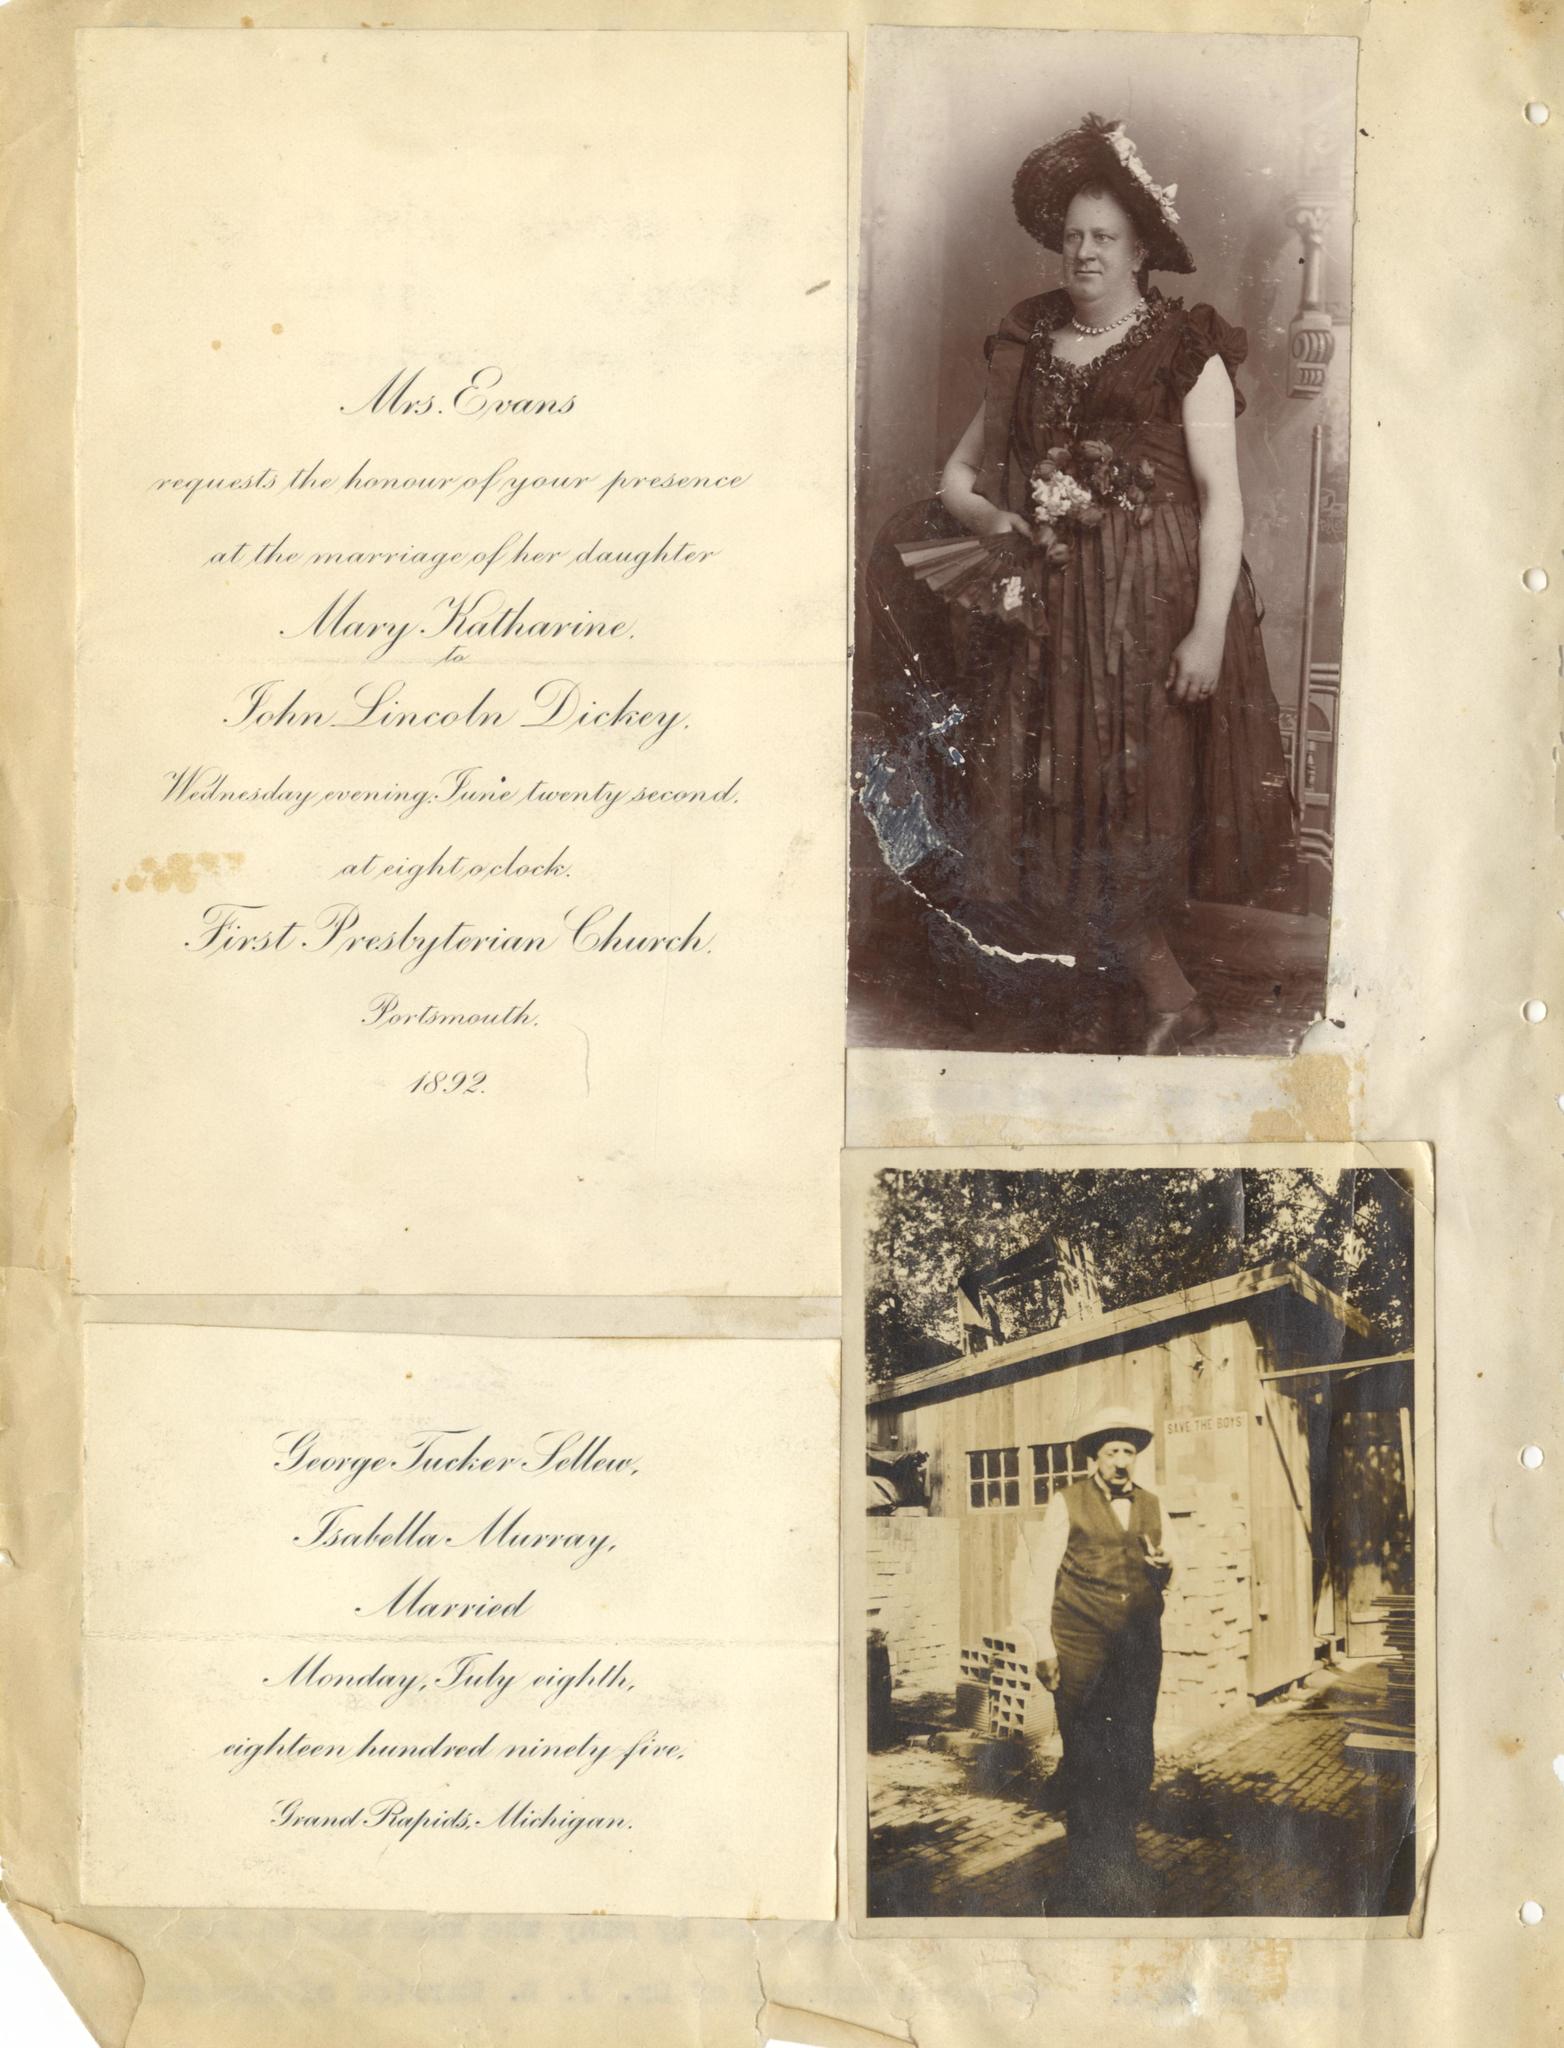 Mrs. Evans
requests the honour of your presence
at the marriage of her daughter
Mary Katharine.
to
John Lincoln Dickey.
Wednesday evening, June twenty second.
at eight o'clock.
First Presbyterian Church.
Portsmouth.
1892.
George Tucker Sellew,
Isabella Murray,
Married
Monday, July eighth,
eighteen hundred ninety-five.
Grand Rapids, Michigan.
SAVE THE BOYS